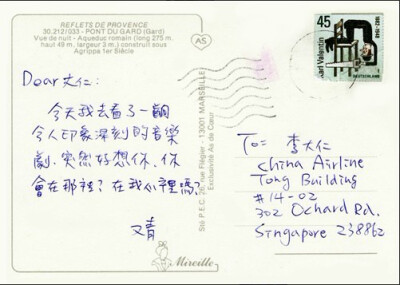 REFLETS DE PROVENCE
30.212/033 - PONT DU GARD (Gard)
Vue de nuit - Aqueduc romain (long 275 m.
haut 49 m, largeur 3 m.) construit sous
Agrippa 1er Siècle
AS
45
Karl Valentin
1882-1948
DEUTSCHLAND
Dear大仁:
今天我去看了一齣
令人印象深刻的音樂
劇,突然好想你,你
會在那裡?在我心裡嗎?
又青
Sté P.E.C. 26, rue Flégier - 13001 MARSEILLE
Exclusivité As de Cœur
Mireille
To: 李大仁
China Airline
Tong Building
#14-02
302 Ochard Rd.
Singapore 238862